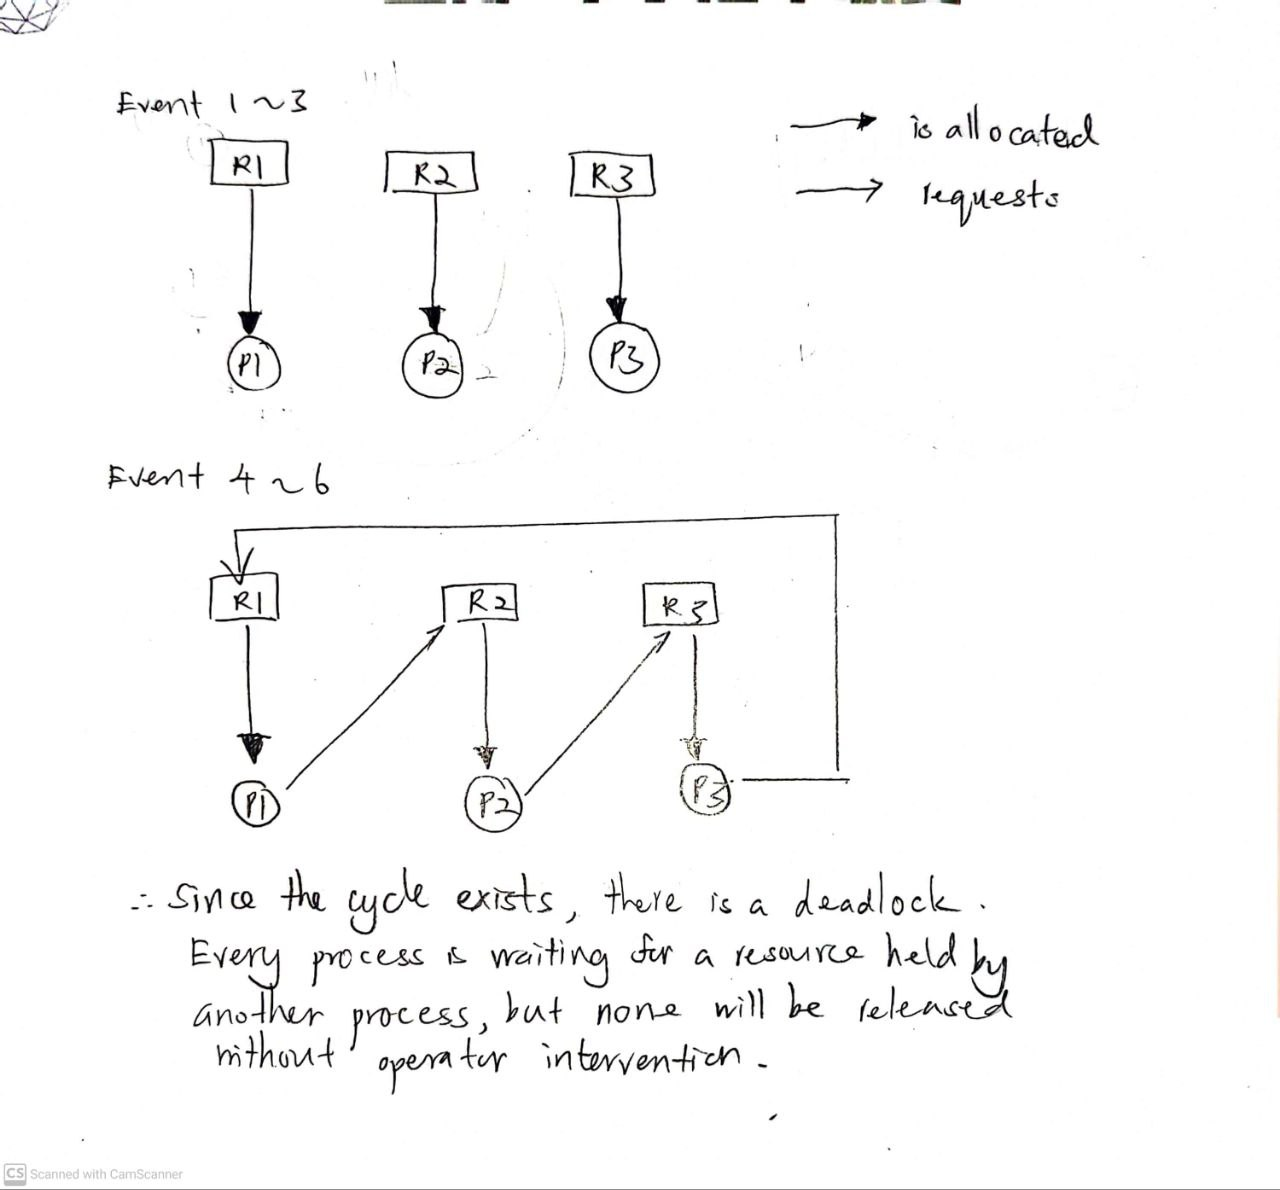 Event 1 ~ 3
is allocated
requests
R1 R2 R3
P1 P2 P3
Event 4 ~ 6
R1 R2 R3
P1 P2 P3
∴ Since the cycle exists, there is a deadlock.
Every process is waiting for a resource held by
another process, but none will be released
without operator intervention.
CS Scanned with CamScanner